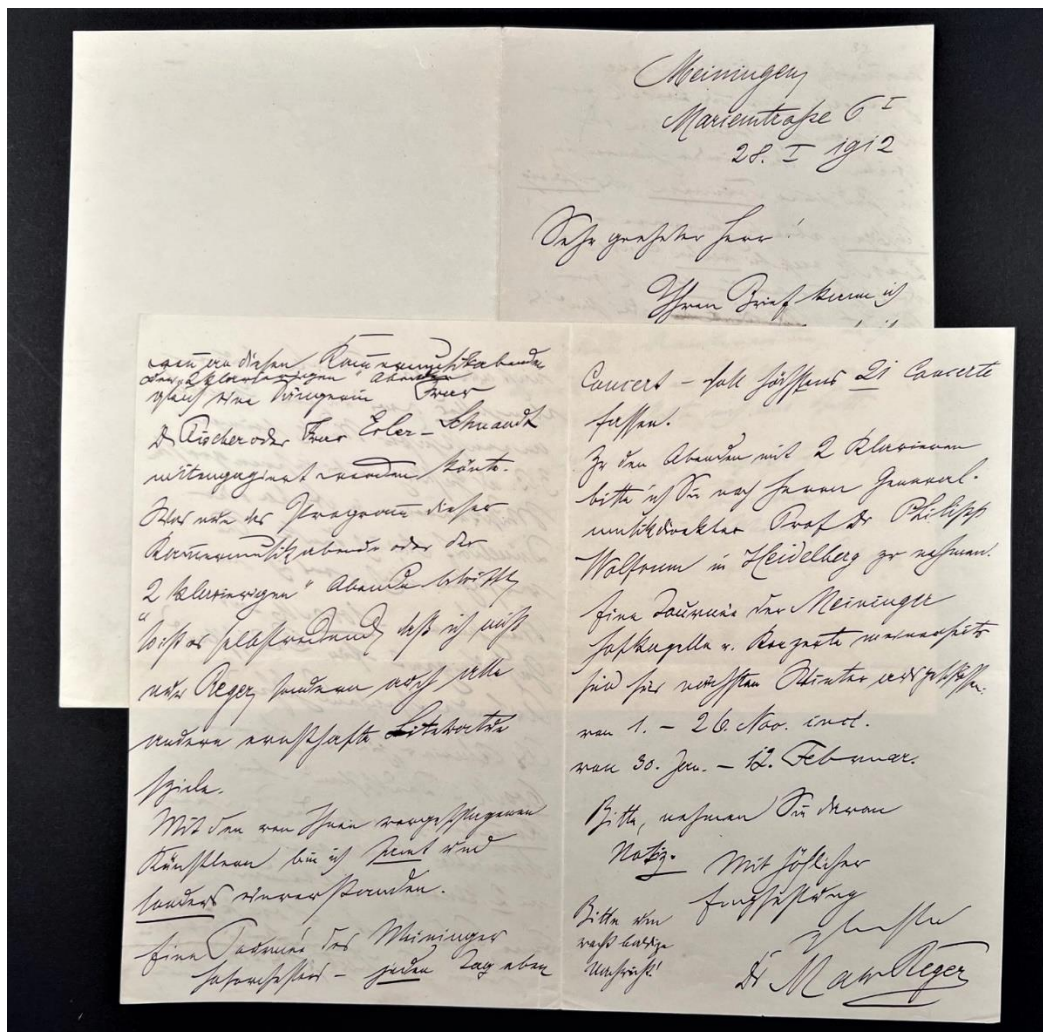 Meiningen,
Marienstraße 6 I
28. I 1912
Sehr geehrter Herr!
Ihren Brief kann ich
wenn an diesen Kammermusikabenden
oder "2 klavierigen" Abenden
gleich eine Sängerin Frau
Dr Fischer oder Frau Erler-Schnaudt
mitengagiert werden könnte.
Was nun das Program dieser
Kammermusikabende oder der
"2 klavierigen" Abende betrifft,
so ist es selbstredend, daß ich nicht
nur Reger, sondern auch alle
andern ernsthafte Literatur
spiele.
Mit den von Ihnen vorgeschlagenen
Künstlern bin ich samt und
sonders einverstanden.
Eine Tournée des Meininger
Hoforchesters – jeden Tag eben
Concert – soll höchstens 21 Concerte
fassen.
Zu den Abenden mit 2 Klavieren
bitte ich Sie noch Herrn General-
musikdirektor Prof Dr Philipp
Wolfrum in Heidelberg zu nehmen.
Eine Tournée der Meininger
Hofkapelle u. Konzerte meinerseits
sind für nächsten Winter ausgeschlossen:
von 1. – 26. Nov. incl.
von 30. Jan. – 12. Februar.
Bitte, nehmen Sie davon
Notiz. Mit höflicher
Empfehlung
Bitte um
recht baldige
Nachricht!
Dr Max Reger